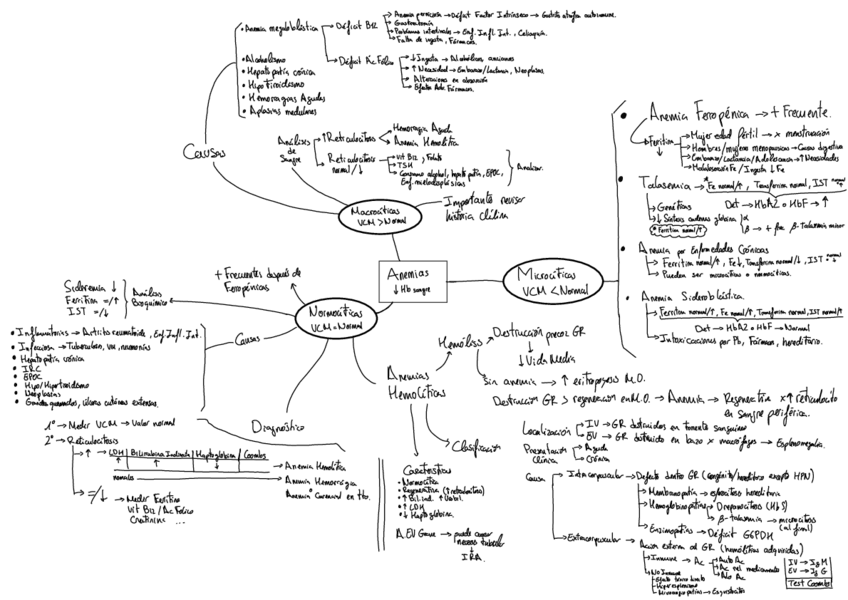 • Anemia megaloblástica
Déficit B12
Anemia perniciosa → Déficit Factor Intrínseco → Gastritis atrofia autoinmune.
Gastrectomía
Problemas intestinales → Enf. Infl. Int., Celiaquía.
Falta de ingesta, Fármacos.
Déficit Ác. Fólico
↓ Ingesta → Alcohólicos, ancianos
↑ Necesidad → Embarazo/Lactancia, Neoplasias
Alteraciones en absorción
Efecto Adv. Fármacos.
• Alcoholismo
• Hepatopatía crónica
• Hipotiroidismo
• Hemorragias Agudas
• Aplasias medulares
Causas
Análisis de Sangre
↑ Reticulocitos
Hemorragia Aguda
Anemia Hemolítica
Reticulocitos normal/↓
Vit B12, Folato
TSH
Consumo alcohol, hepatopatía, EPOC,
Enf. mielodisplásicas
Analizar
Macrocíticas
VCM > Normal
Importante revisar
historia clínica
Anemias
↓ Hb sangre
Microcíticas
VCM < Normal
• Anemia Ferropénica → + Frecuente.
Ferritina ↓
Mujer edad fértil → x menstruación
Hombres/mujeres menopausicas → Causa digestiva
Embarazo/Lactancia/Adolescencia → ↑ Necesidades
Malabsorción Fe / Ingesta ↓ Fe
• Talasemia → Fe normal/↑, Transferrina normal, IST normal/↑
Genéticas
↓ Síntesis cadenas globina
α
β → + fre β-Talasemia minor
Det → HbA2 o HbF → ↑
• Ferritina normal/↑
• Anemia por Enfermedades Crónicas
Ferritina normal/↑, Fe↓, Transferrina normal/↓, IST normal/↓
Pueden ser microcíticas o normocíticas.
• Anemia Sideroblástica.
Ferritina normal/↑, Fe normal/↑, Transferrina normal, IST normal/↑
Det → HbA2 o HbF → Normal
Intoxicaciones por Pb, Fármacos, hereditario.
+ Frecuentes después de
Ferropénicas
Normocíticas
VCM = Normal
Sideremia ↓
Ferritina =/↑
IST =/↓
Análisis
Bioquímico
Causas
• Inflamatorias → Artritis reumatoide, Enf. Infl. Int.
• Infecciosa → Tuberculosis, VIH, neumonías
• Hepatopatía crónica
• IRC
• EPOC
• Hipo/Hipertiroidismo
• Neoplasias
• Grandes quemados, úlceras cutáneas extensas.
Diagnóstico
1º → Medir VCM → Valor normal
2º → Reticulocitosis
↑ → LDH | Bilirrubina Indirecta | Haptoglobina | Coombs
↑ ↑ ↓
→ Anemia Hemolítica
normales → Anemia Hemorrágica
Anemia Carencial en tto.
=/↓ → Medir Ferritina
Vit B12 / Ac Fólico
Creatinina ...
Anemias
Hemolíticas
Hemólisis
Destrucción precoz GR
↓ Vida Media
Sin anemia → ↑ eritropoyesis M.O.
Destrucción GR > regeneración en M.O. → Anemia → Regenerativa x ↑ reticulocitos
en sangre periférica.
Clasificación
Localización
IV → GR destruidos en torrente sanguíneo
EV → GR destruido en bazo x macrófagos → Esplenomegalia.
Presentación
Clínica
Aguda
Crónica
Causa
Intracorpuscular → Defecto dentro GR (congénito/hereditario excepto HPN)
Membranopatía → esferocitosis hereditaria
Hemoglobinopatías → Drepanocitosis (HbS)
β-talasemia → microcíticas
(al final)
Enzimopatías → Déficit G6PDH
Extracorpuscular → Acción externa al GR (hemolíticas adquiridas)
Inmune → Ac
Auto Ac
Ac rel medicamento
Alo Ac
IV → Ig M
EV → Ig G
Test Coombs
No Inmune
Microangiopatías → Esquistocitos
Características
• Normocítica
• Regenerativa (↑ reticulocitos)
• ↑ Bil. ind. ↑ Urobil.
• ↑ LDH
• ↓ Haptoglobina
A. EV Grave → puede causar
necrosis tubular
↓
IRA.